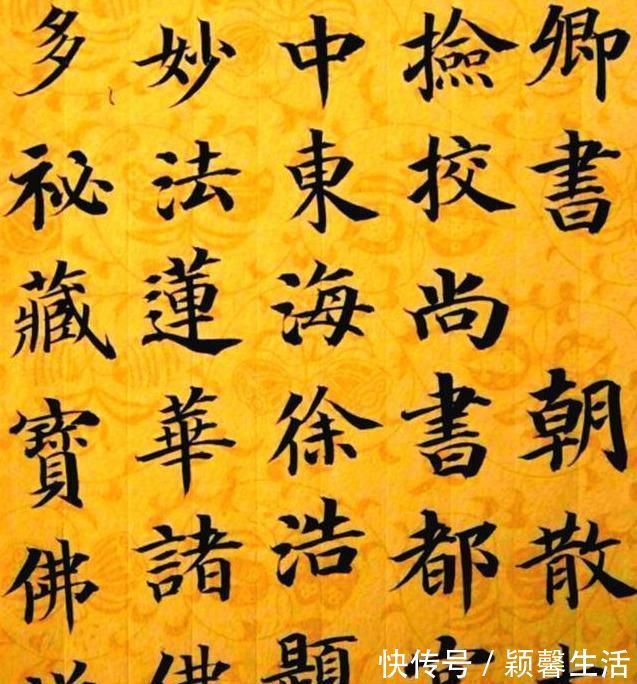 卿書 朝散
撿挍尚書都
中東海徐浩
妙法蓮華諸佛
多祕藏寶佛
快传号 / 颖馨生活